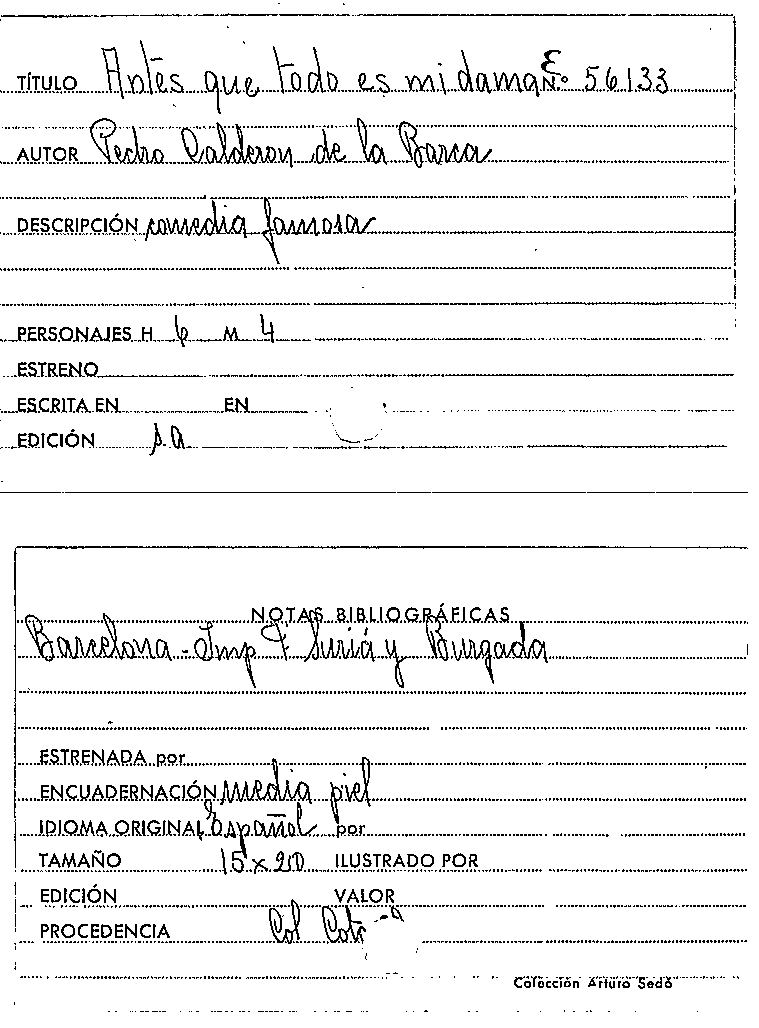 TÍTULO Antes que todo es mi dama N.º 56133
AUTOR Pedro Calderon de la Barca
DESCRIPCIÓN comedia famosa
PERSONAJES H 6 M 4
ESTRENO
ESCRITA EN EN
EDICIÓN s.a
NOTAS BIBLIOGRÁFICAS
Barcelona - Imp F Suriá y Burgada
ESTRENADA por
ENCUADERNACIÓN media piel
IDIOMA ORIGINAL Español por
TAMAÑO 15 x 20 ILUSTRADO POR
EDICIÓN VALOR
PROCEDENCIA Col
Colección Arturo Sedó